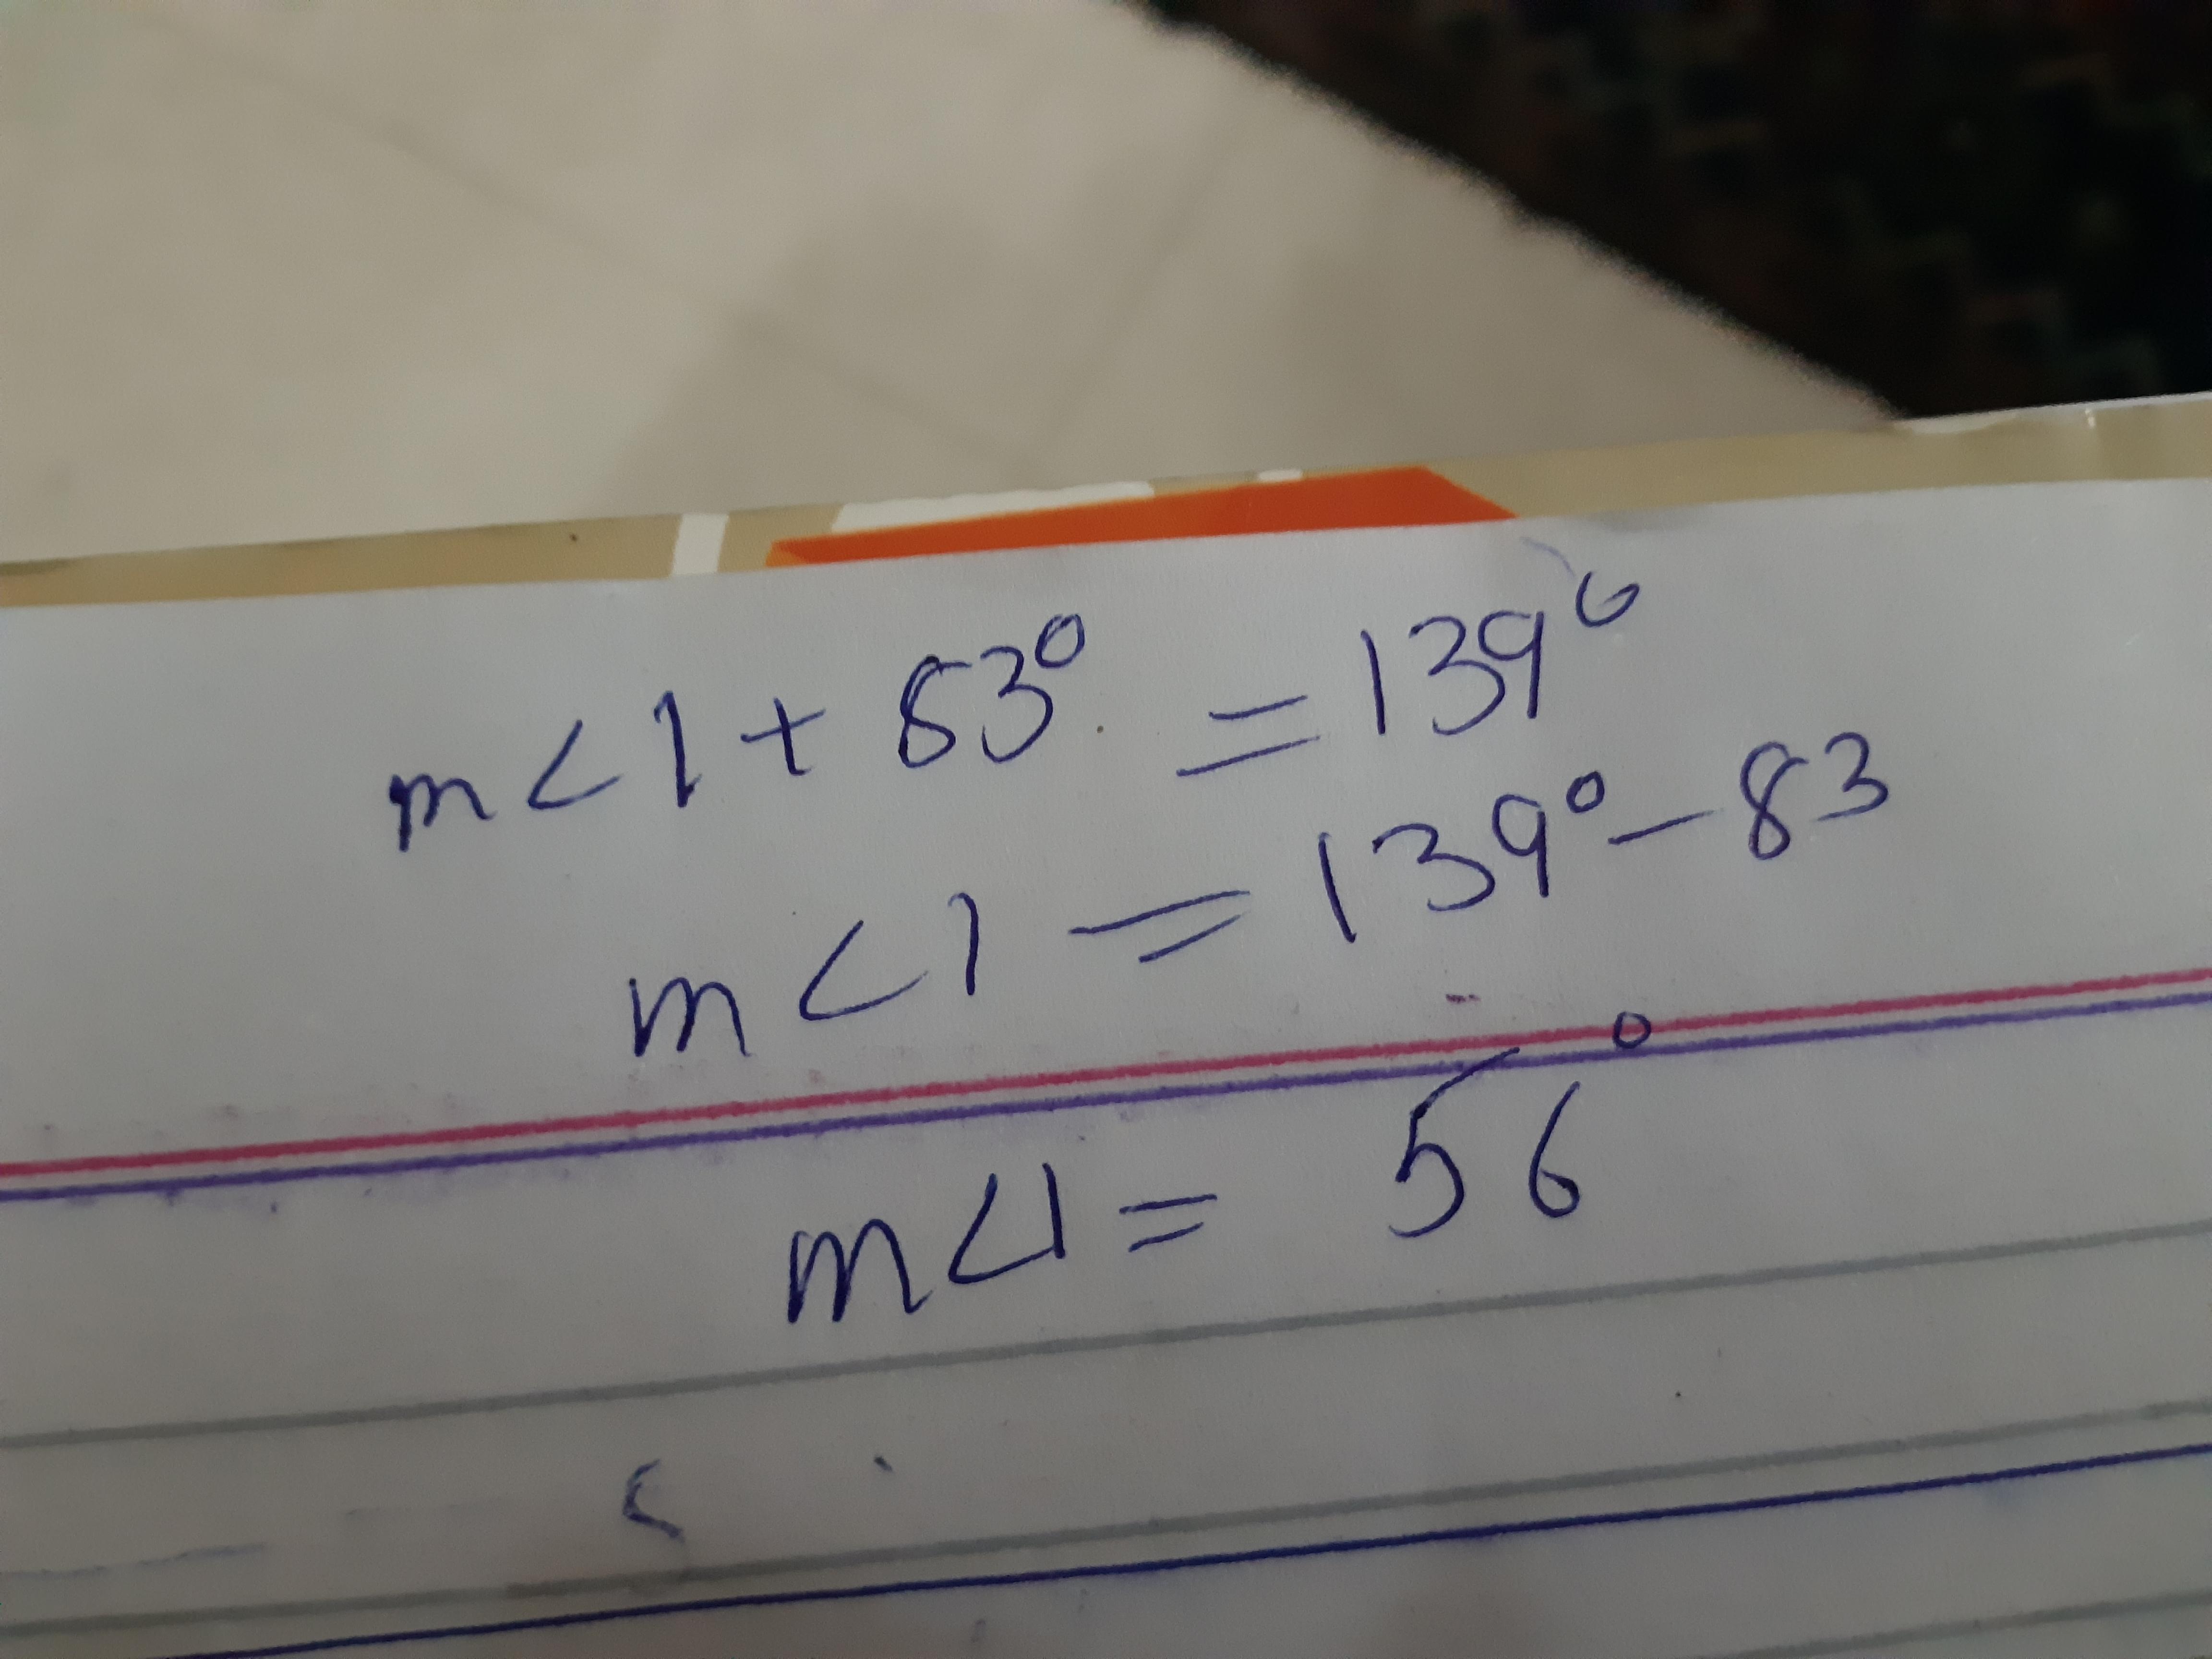 m<1 + 83° = 139°
m<1 = 139° - 83
m<1 = 56°